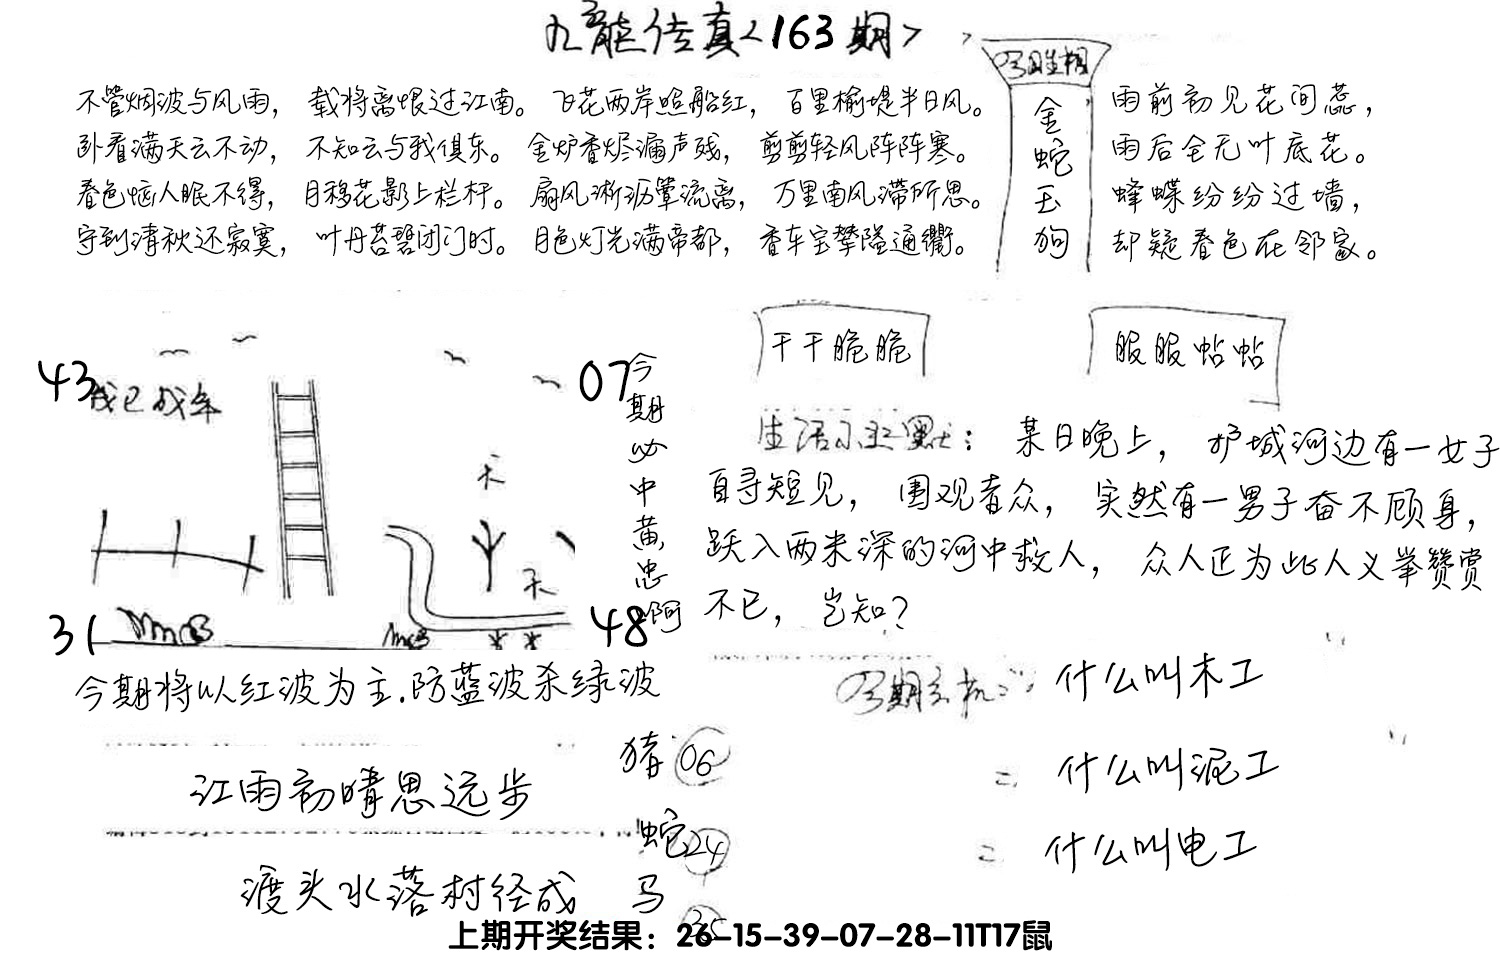 九龍传真<163期>
不管烟波与风雨，载将离恨过江南。飞花两岸照船红，百里榆堤半日风。
卧看满天云不动，不知云与我俱东。金炉香烬漏声残，剪剪轻风阵阵寒。
春色恼人眠不得，月移花影上栏杆。扇风淅沥簟流离，万里南风滞所思。
守到清秋还寂寞，叶丹苔碧闭门时。月色灯光满帝都，香车宝辇隘通衢。
金蛇玉狗
雨前初见花间蕊，
雨后全无叶底花。
蜂蝶纷纷过墙，
却疑春色在邻家。
干干脆脆
服服帖帖
43
07
31
48
我已成年
天
天
今期必中黄忠啊
生活小幽默：某日晚上，护城河边有一女子
自寻短见，围观者众，突然有一男子奋不顾身，
跃入两米深的河中救人，众人正为此人义举赞赏
不已，岂知？
今期将以红波为主.防蓝波杀绿波
什么叫木工
= 什么叫泥工
= 什么叫电工
江雨初晴思远步
渡头水落村径成
猪 06
蛇 24
马 35
上期开奖结果：26-15-39-07-28-11T17鼠